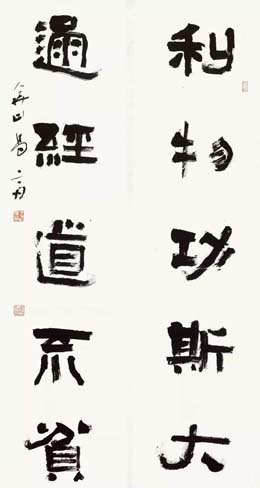 利物功斯大
通經道不貧